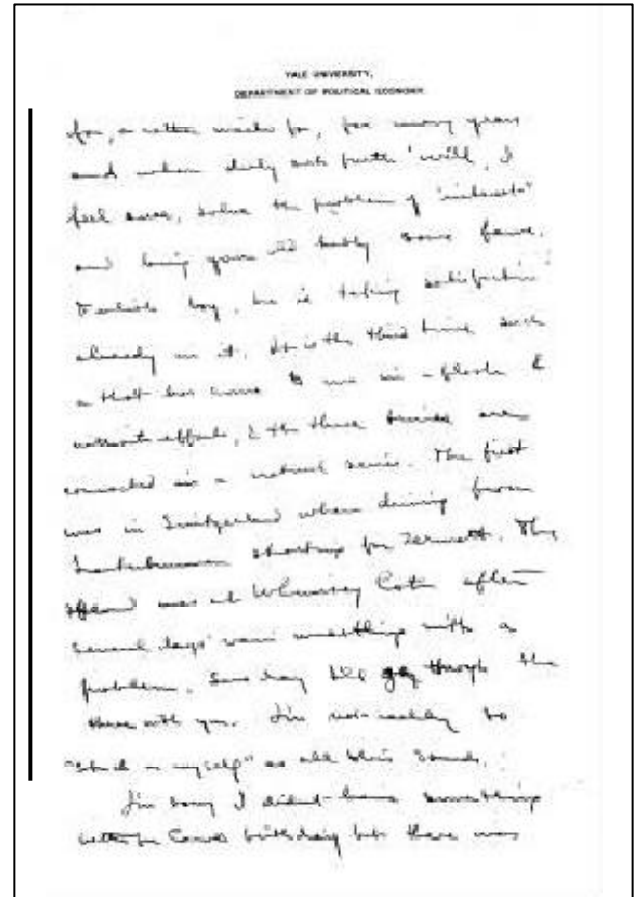 YALE UNIVERSITY,
DEPARTMENT OF POLITICAL ECONOMY
for, for many years
and when duly put forth will, I
feel sure, solve the problem of "interest"
and bring your old hubby some fame.
boy, he is taking satisfaction
already in it. It is the third time such
a thot has come to me in a flash &
without effort, & the three are
connected in a natural series. The first
was in Switzerland when driving from
Lauterbrunnen starting for Zermatt. The
second was at Whimsey Cote after
several days' vain wrestling with a
problem. Some day I'll go through the
three with you. I'm not really so
"stuck on myself" as all this sounds.
I'm sorry I didn't leave something
with birthday but there was